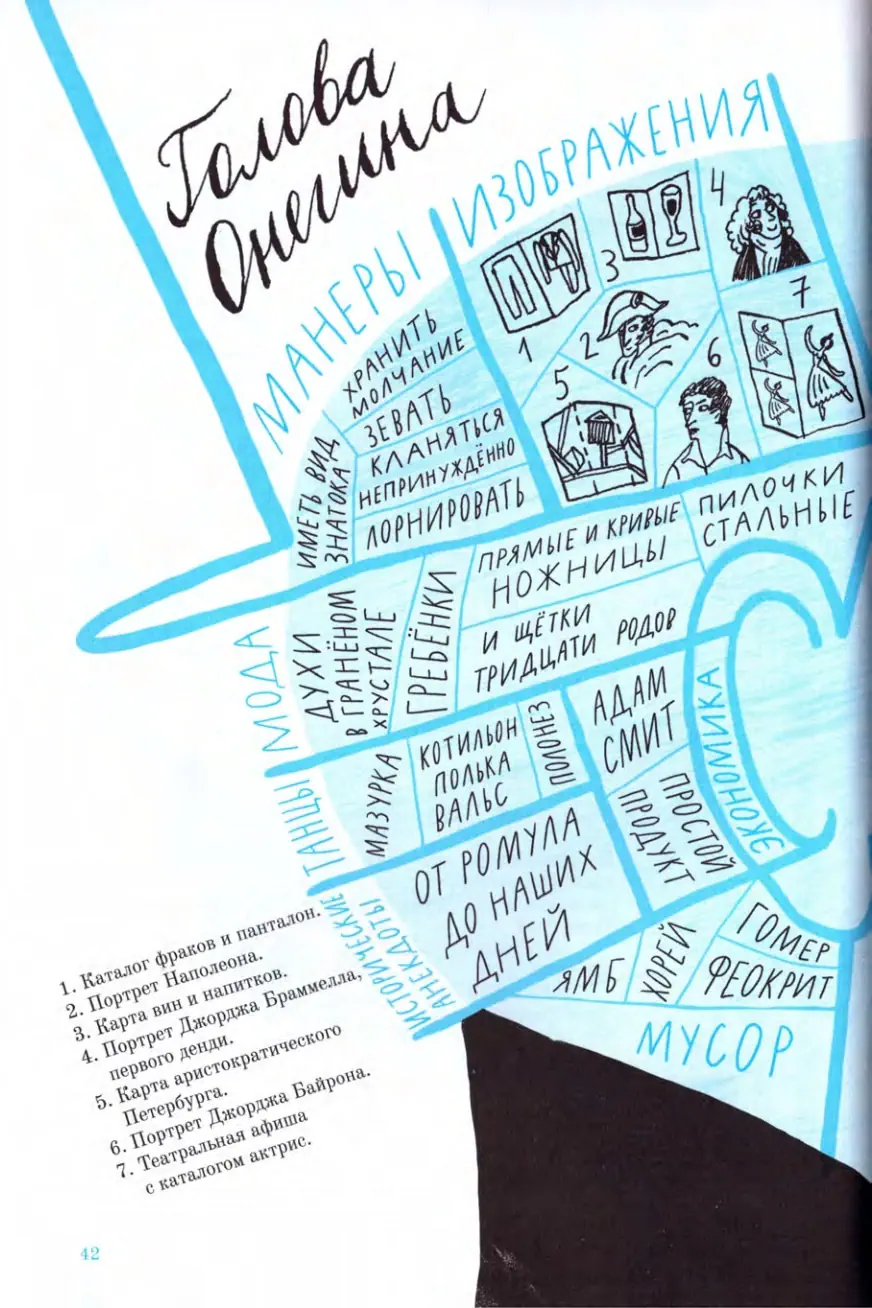 Голова
Онегина
МАНЕРЫ
ИЗОБРАЖЕНИЯ
ХРАНИТЬ
МОЛЧАНИЕ
ЗЕВАТЬ
КЛАНЯТЬСЯ
НЕПРИНУЖДЁННО
ЛОРНИРОВАТЬ
ИМЕТЬ ВИД
ЗНАТОКА
1
2
3
4
5
6
7
МОДА
ДУХИ
В ГРАНЁНОМ
ХРУСТАЛЕ
ГРЕБЁНКИ
ПРЯМЫЕ И КРИВЫЕ
НОЖНИЦЫ
ПИЛОЧКИ
СТАЛЬНЫЕ
И ЩЁТКИ
ТРИДЦАТИ РОДОВ
ТАНЦЫ
МАЗУРКА
КОТИЛЬОН
ПОЛЬКА
ВАЛЬС
ПОЛОНЕЗ
АДАМ
СМИТ
ПРОСТОЙ
ПРОДУКТ
ЭКОНОМИКА
ИСТОРИЧЕСКИЕ
АНЕКДОТЫ
ОТ РОМУЛА
ДО НАШИХ
ДНЕЙ
ЯМБ
ХОРЕЙ
ГОМЕР
ФЕОКРИТ
МУСОР
1. Каталог фраков и панталон.
2. Портрет Наполеона.
3. Карта вин и напитков.
4. Портрет Джорджа Браммелла,
первого денди.
5. Карта аристократического
Петербурга.
6. Портрет Джорджа Байрона.
7. Театральная афиша
с каталогом актрис.
42